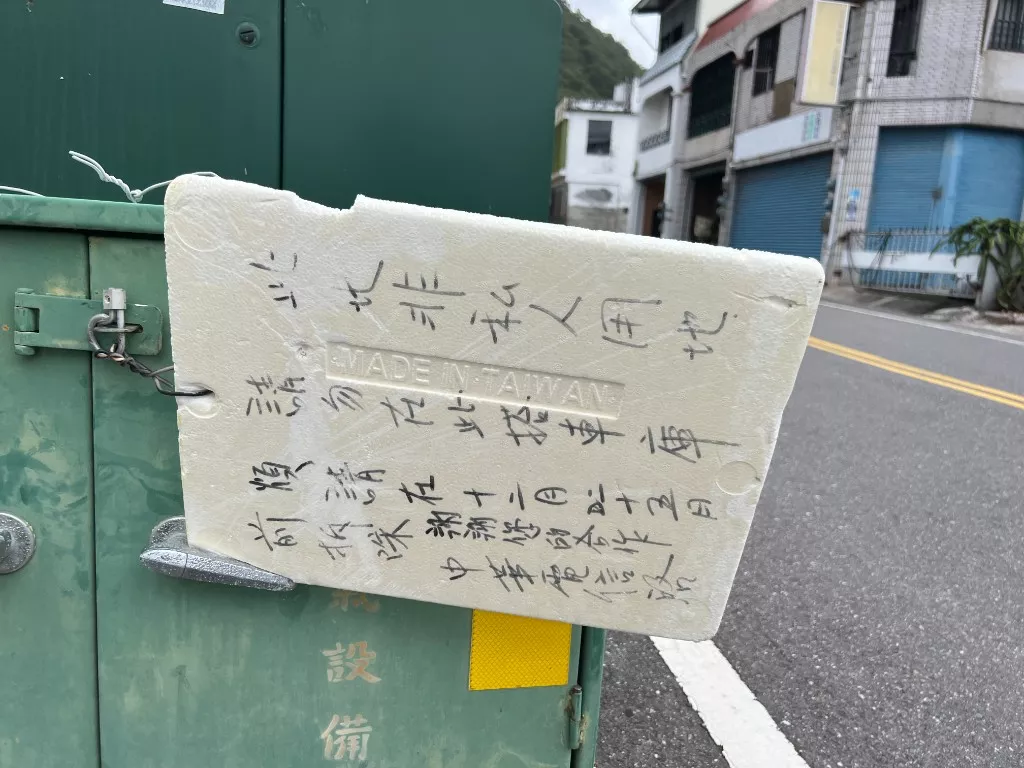 此地非私人用地
MADE IN TAIWAN
請勿在此搭車庫
煩請在十二月二十五日
前拆除 謝謝您的合作
中華電信啟
設備